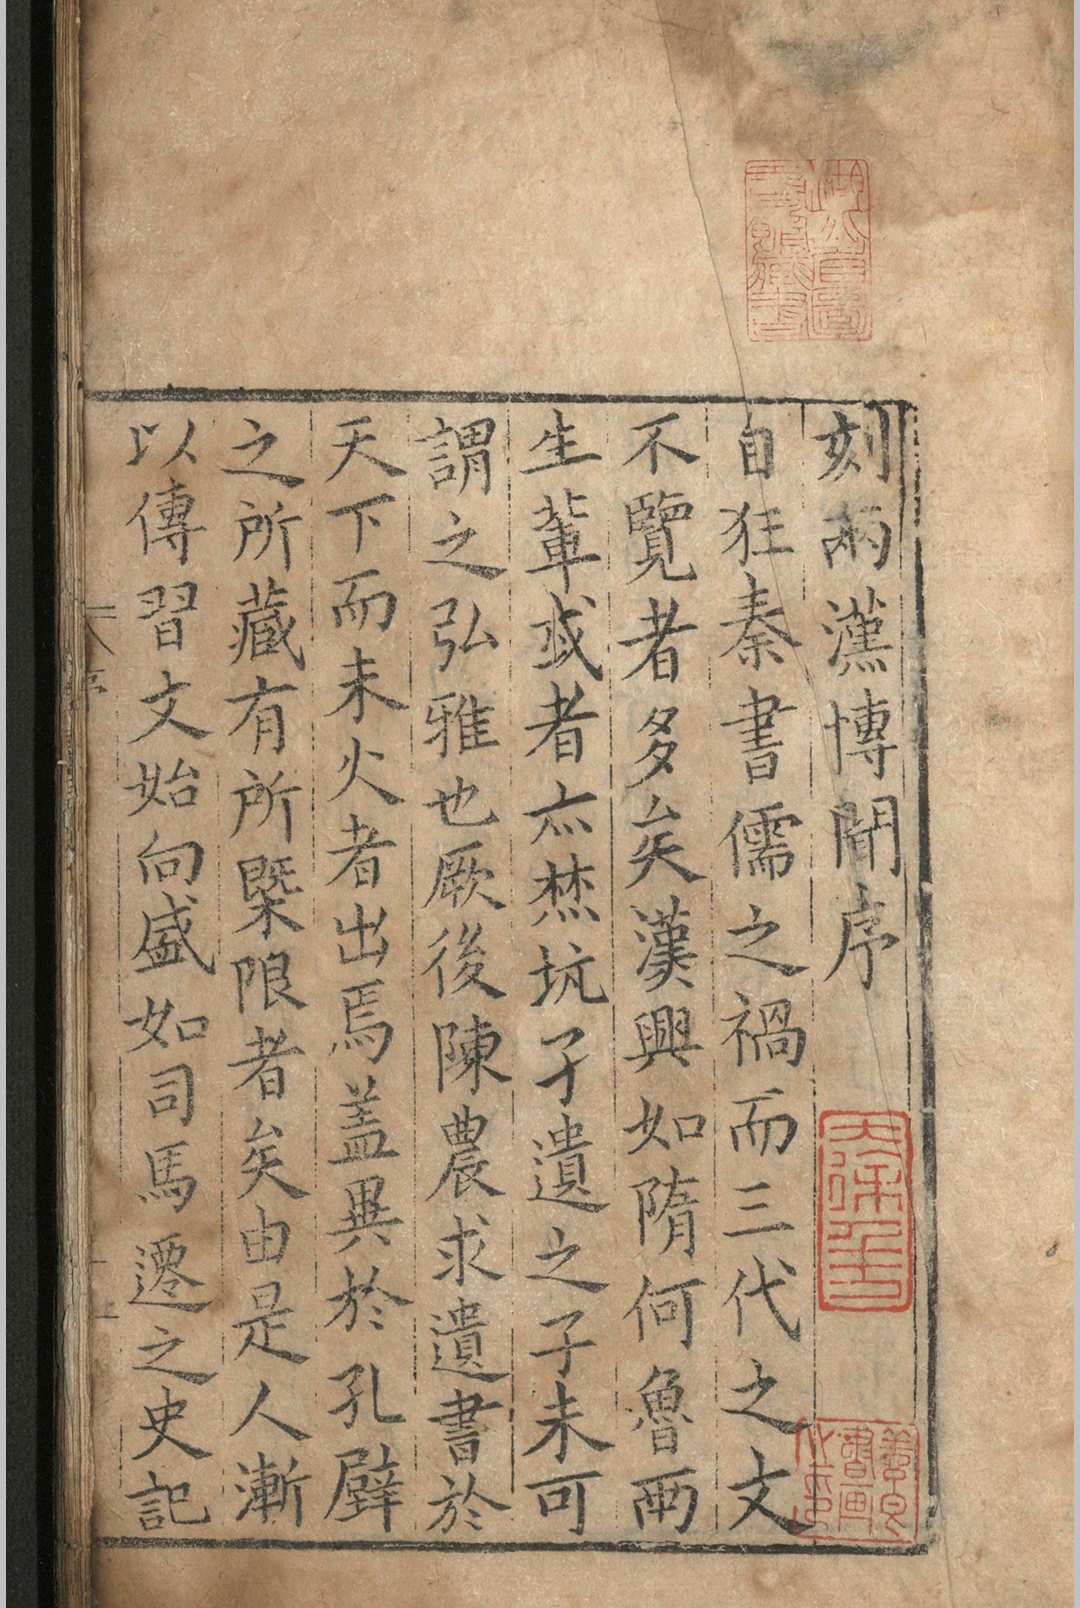 刻兩漢博聞序
自狂秦書儒之禍而三代之文
不覽者多矣漢興如隋何魯兩
生輩或者亦焚坑孑遺之子未可
謂之弘雅也厥後陳農求遺書於
天下而未火者出焉蓋異於孔壁
之所藏有所槩限者矣由是人漸
以傳習文始向盛如司馬遷之史記